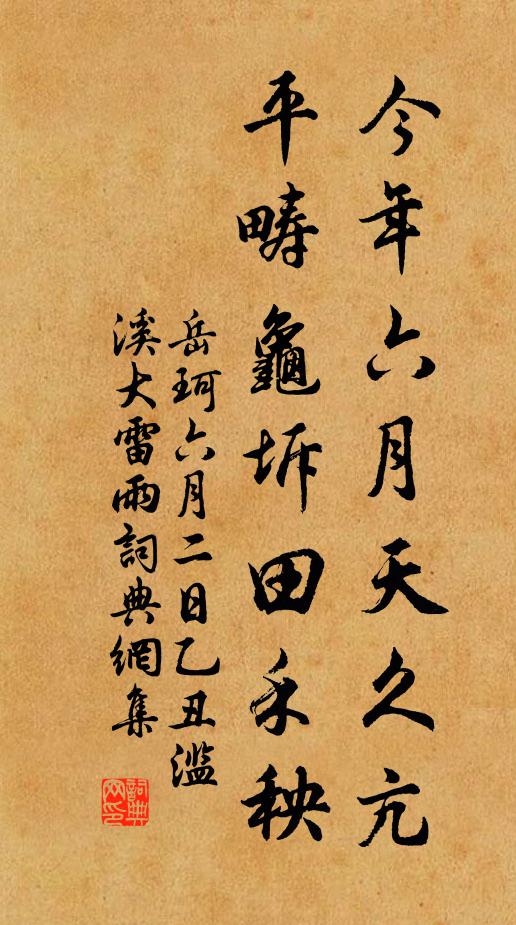 今年六月天久亢
平疇龜坼田禾秧
岳珂六月二日乙丑滥
溪大雷雨詞典網集
詞典
网印